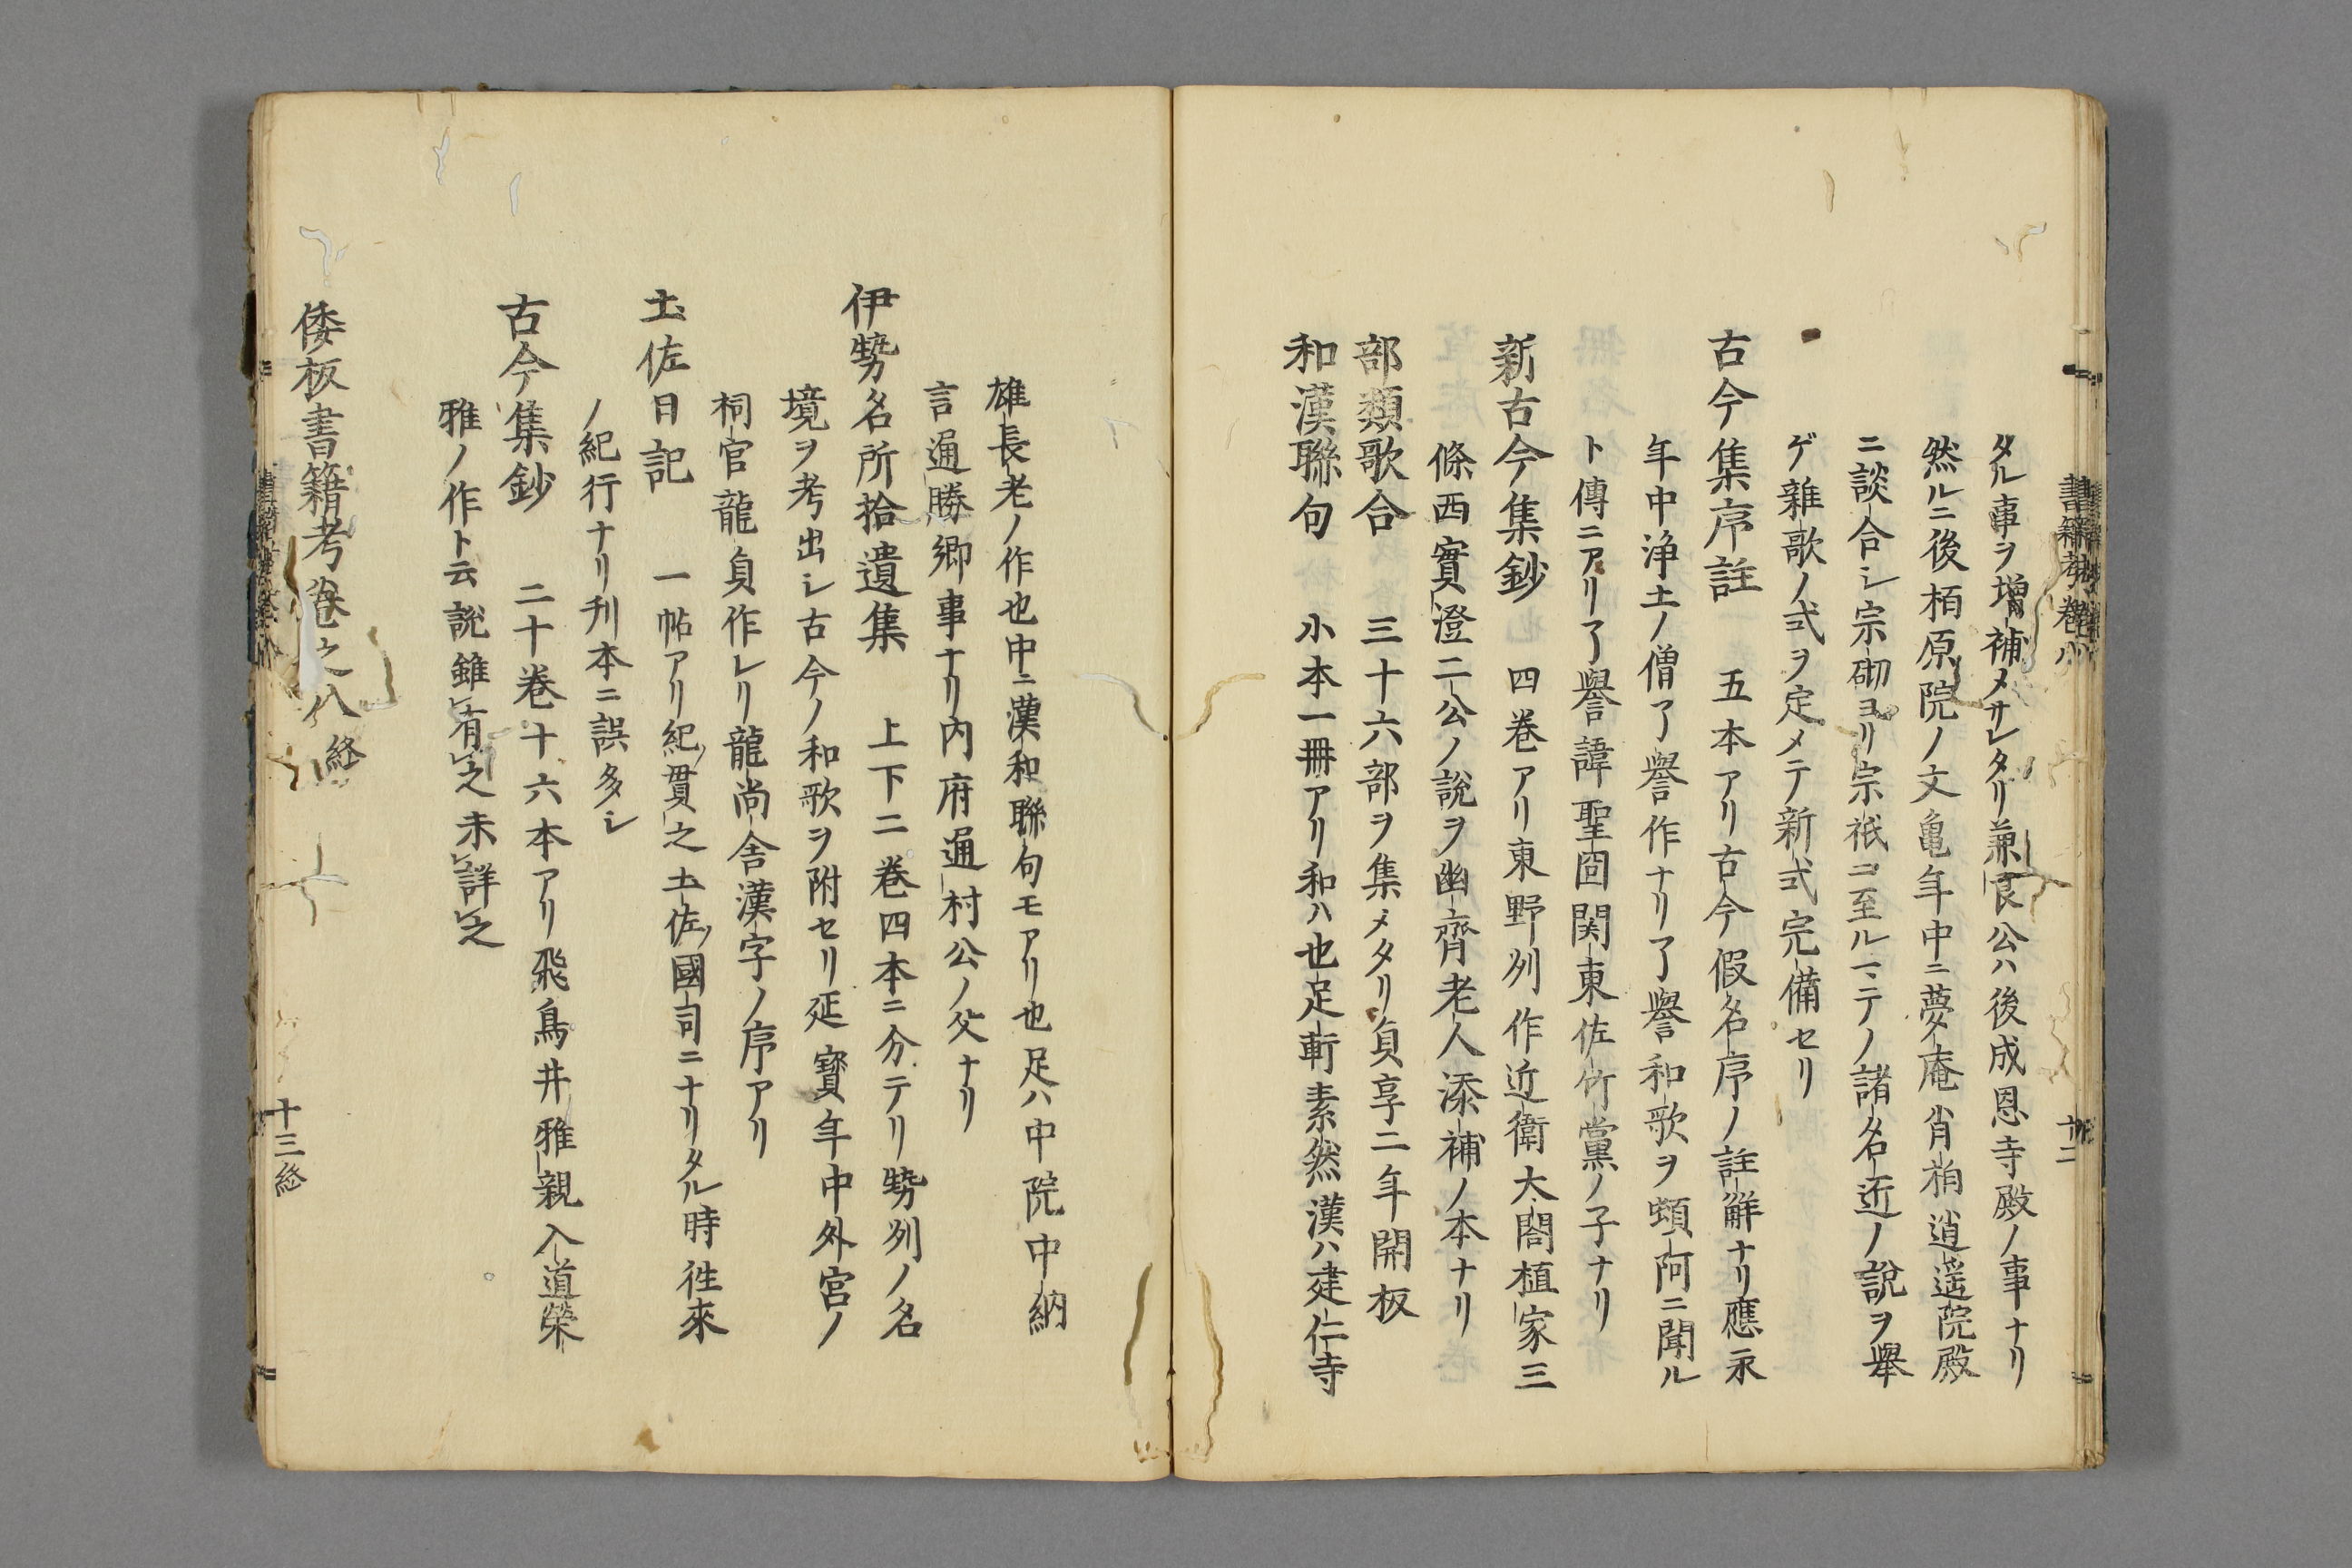 タル事ヲ増補メサレタリ兼良公ハ後成恩寺殿ノ事ナリ
然ルニ後栢原院ノ文亀年中ニ夢庵肖柏逍遥院殿
ニ談合シ宗砌ヨリ宗祇ニ至ルマテノ諸名近ノ説ヲ挙
ゲ雑歌ノ式ヲ定メテ新式完備セリ
古今集序註 五本アリ古今假名序ノ註解ナリ應永
年中浄土ノ僧了誉作ナリ了誉和歌ヲ頓阿ニ聞ル
ト傳ニアリ了誉諱聖冏関東佐竹黨ノ子ナリ
新古今集鈔 四巻アリ東野州作近衛大閤植家三
條西實澄二公ノ説ヲ幽齋老人添補ノ本ナリ
部類歌合 三十六部ヲ集メタリ貞享二年開板
和漢聯句 小本一冊アリ和ハ也足軒素然漢ハ建仁寺
雄長老ノ作也中ニ漢和聯句モアリ也足ハ中院中納
言通勝卿事ナリ内府通村公ノ父ナリ
伊勢名所拾遺集 上下二巻四本ニ分テリ勢州ノ名
境ヲ考出シ古今ノ和歌ヲ附セリ延寳年中外宮ノ
祠官龍貞作レリ龍尚舎漢字ノ序アリ
土佐日記 一帖アリ紀ノ貫之土佐ノ國司ニナリタル時往來
ノ紀行ナリ刋本ニ誤多シ
古今集鈔 二十巻十六本アリ飛鳥井雅親入道榮
雅ノ作ト云説雖有之未詳之
倭板書籍考巻之八 終
十三終